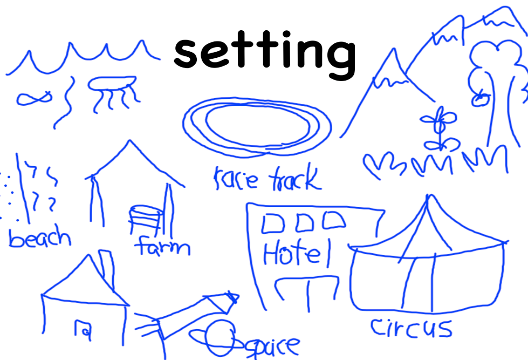 setting
race track
beach
farm
Hotel
circus
space